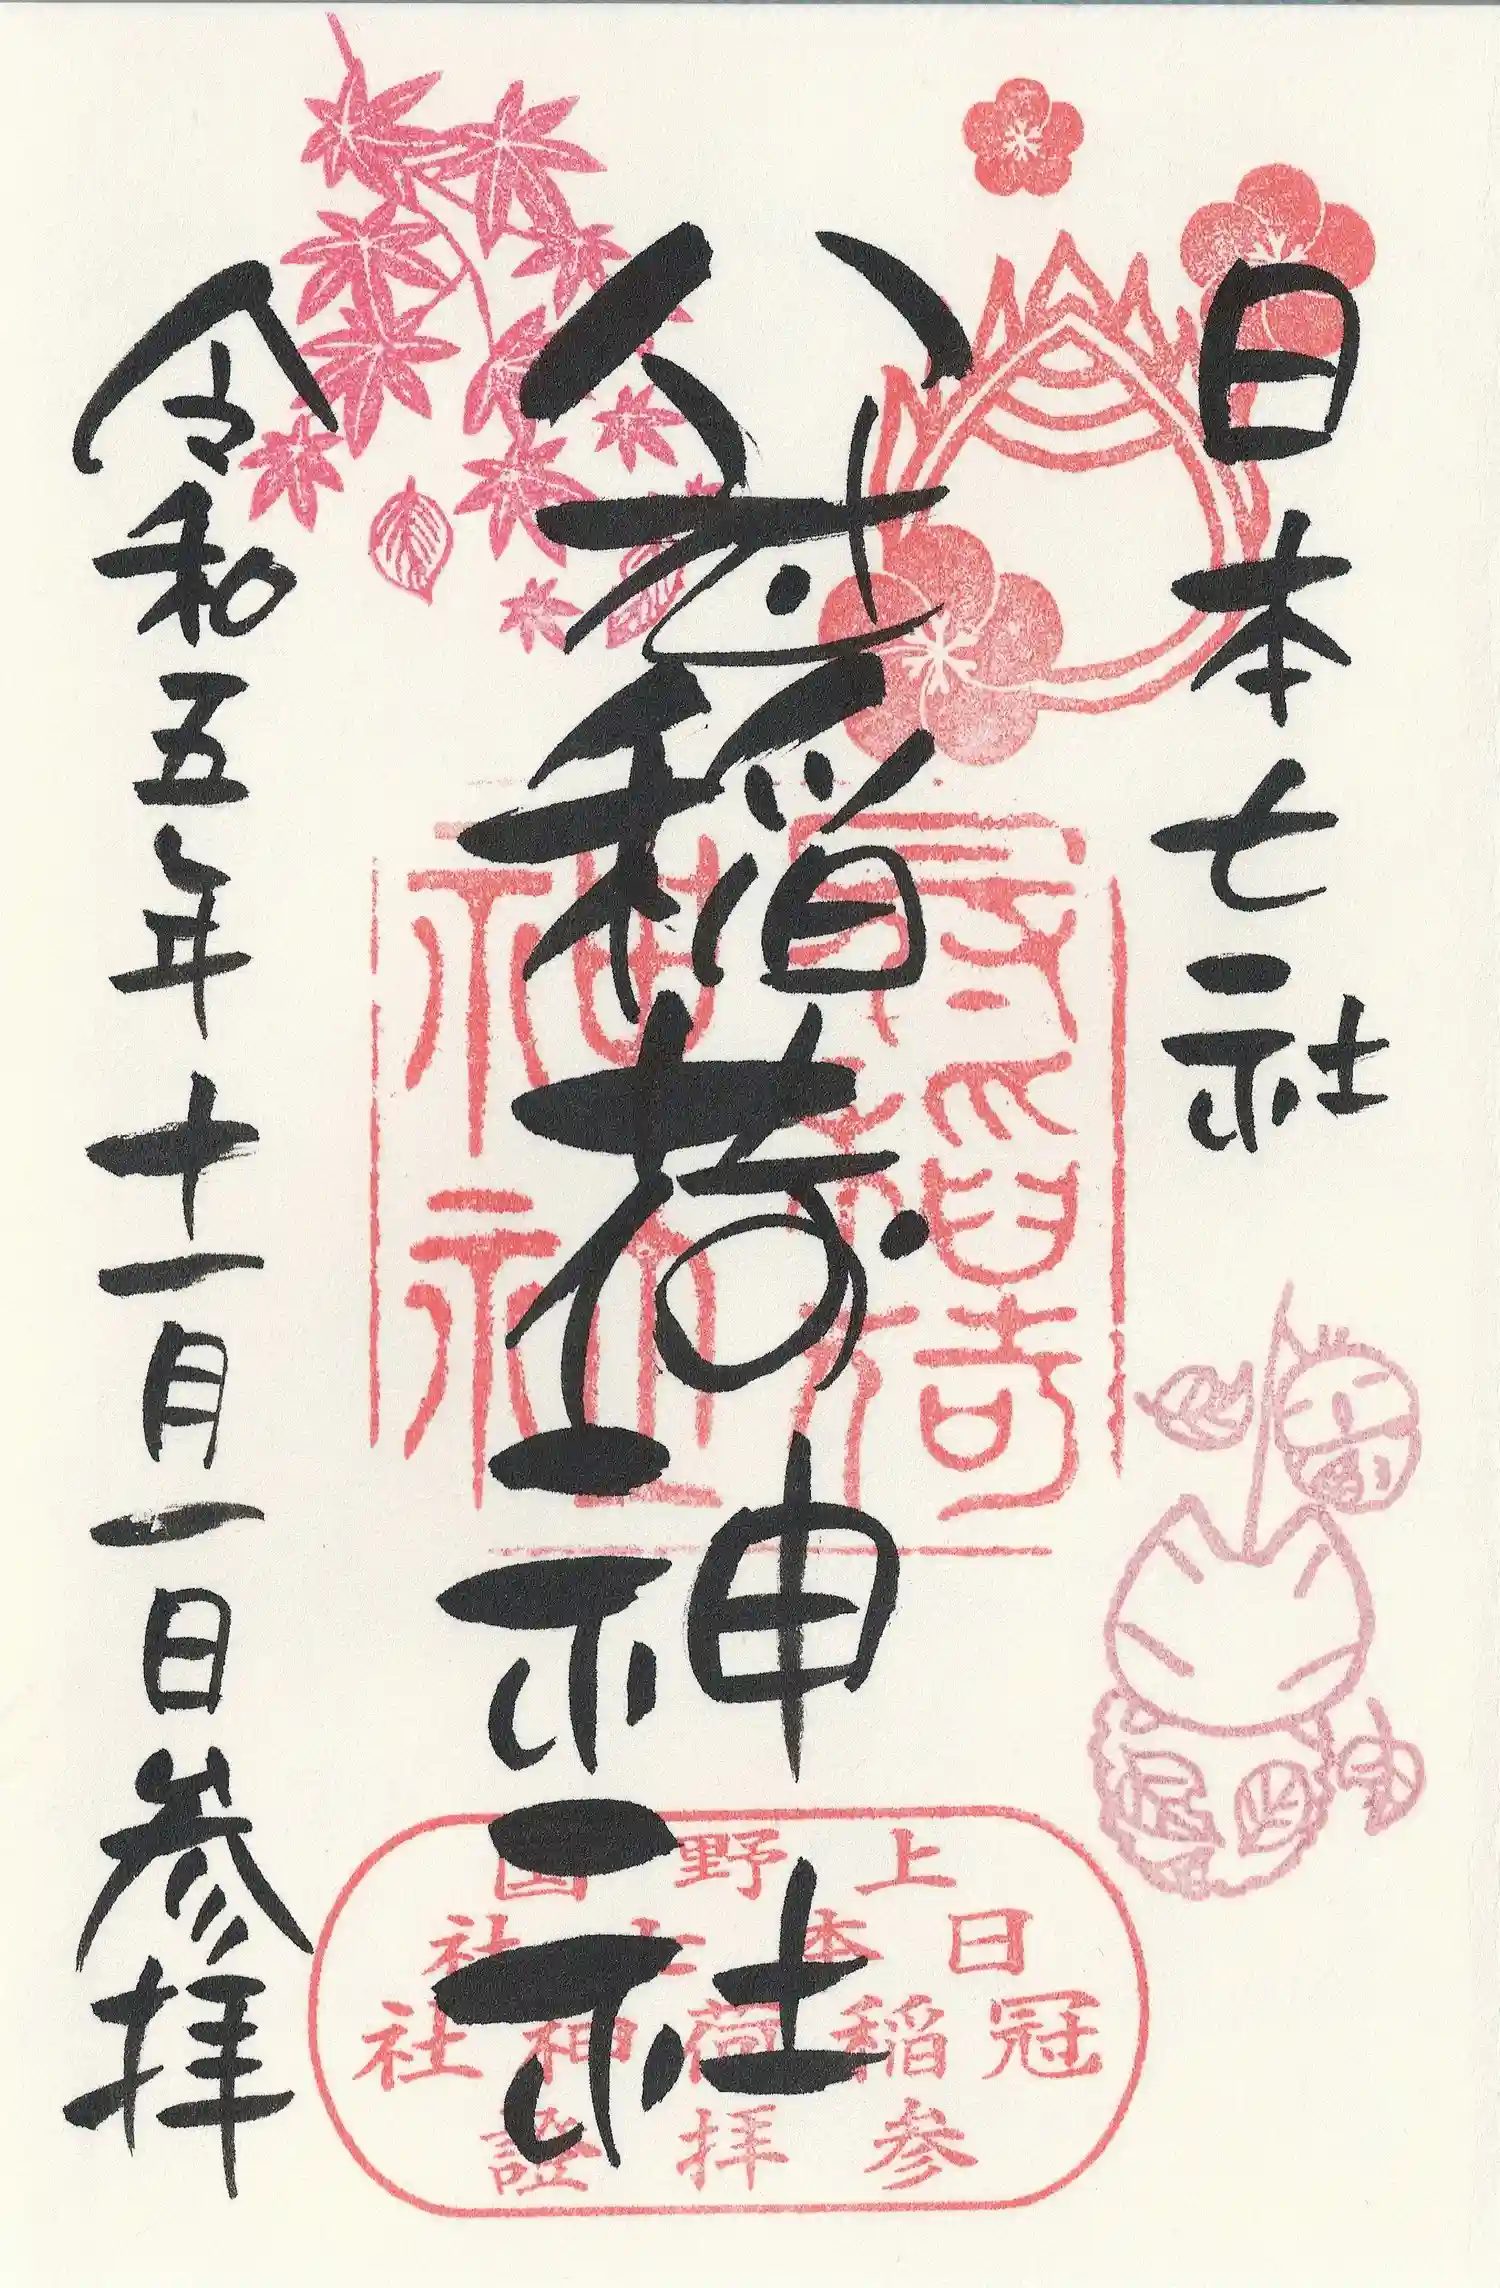 日本七社
冠稲荷神社
令和五年十一月一日参拝
冠稲荷
神社
上野国
日本七社
冠稲荷神社
参拝證